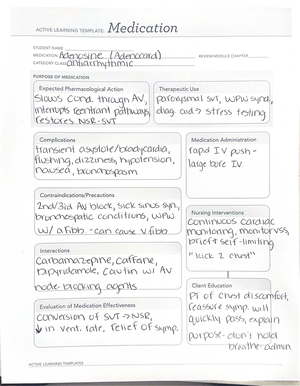 ACTIVE LEARNING TEMPLATE: Medication
STUDENT NAME
MEDICATION Adenosine (Adenocard)
REVIEW MODULE CHAPTER
CATEGORY CLASS antiarrhythmic
PURPOSE OF MEDICATION
Expected Pharmacological Action
Slows cond. through AV,
interrupts reentrant pathways,
restores NSR-SVT
Therapeutic Use
paroxysmal SVT, WPW synd,
diag. aid → stress testing
Complications
transient asystole/bradycardia,
flushing, dizziness, hypotension,
nausea, bronchospasm
Medication Administration
rapid IV push -
large bore IV
Contraindications/Precautions
2nd/3rd AV block, sick sinus syn,
bronchospastic conditions, WPW
w/ a fibb - can cause v fibb
Nursing Interventions
continuous cardiac
monitoring, monitor VSS,
brief & self-limiting
"kick 2 chest"
Interactions
Carbamazepine, caffeine,
Dipyridamole, caution w/ AV
node-blocking agents
Client Education
Pt of chest discomfort,
reassure symp. will
quickly pass, explain
purpose - don't hold
breath e-admin
Evaluation of Medication Effectiveness
conversion of SVT → NSR,
↓ in vent. rate, relief of symp.
ACTIVE LEARNING TEMPLATES